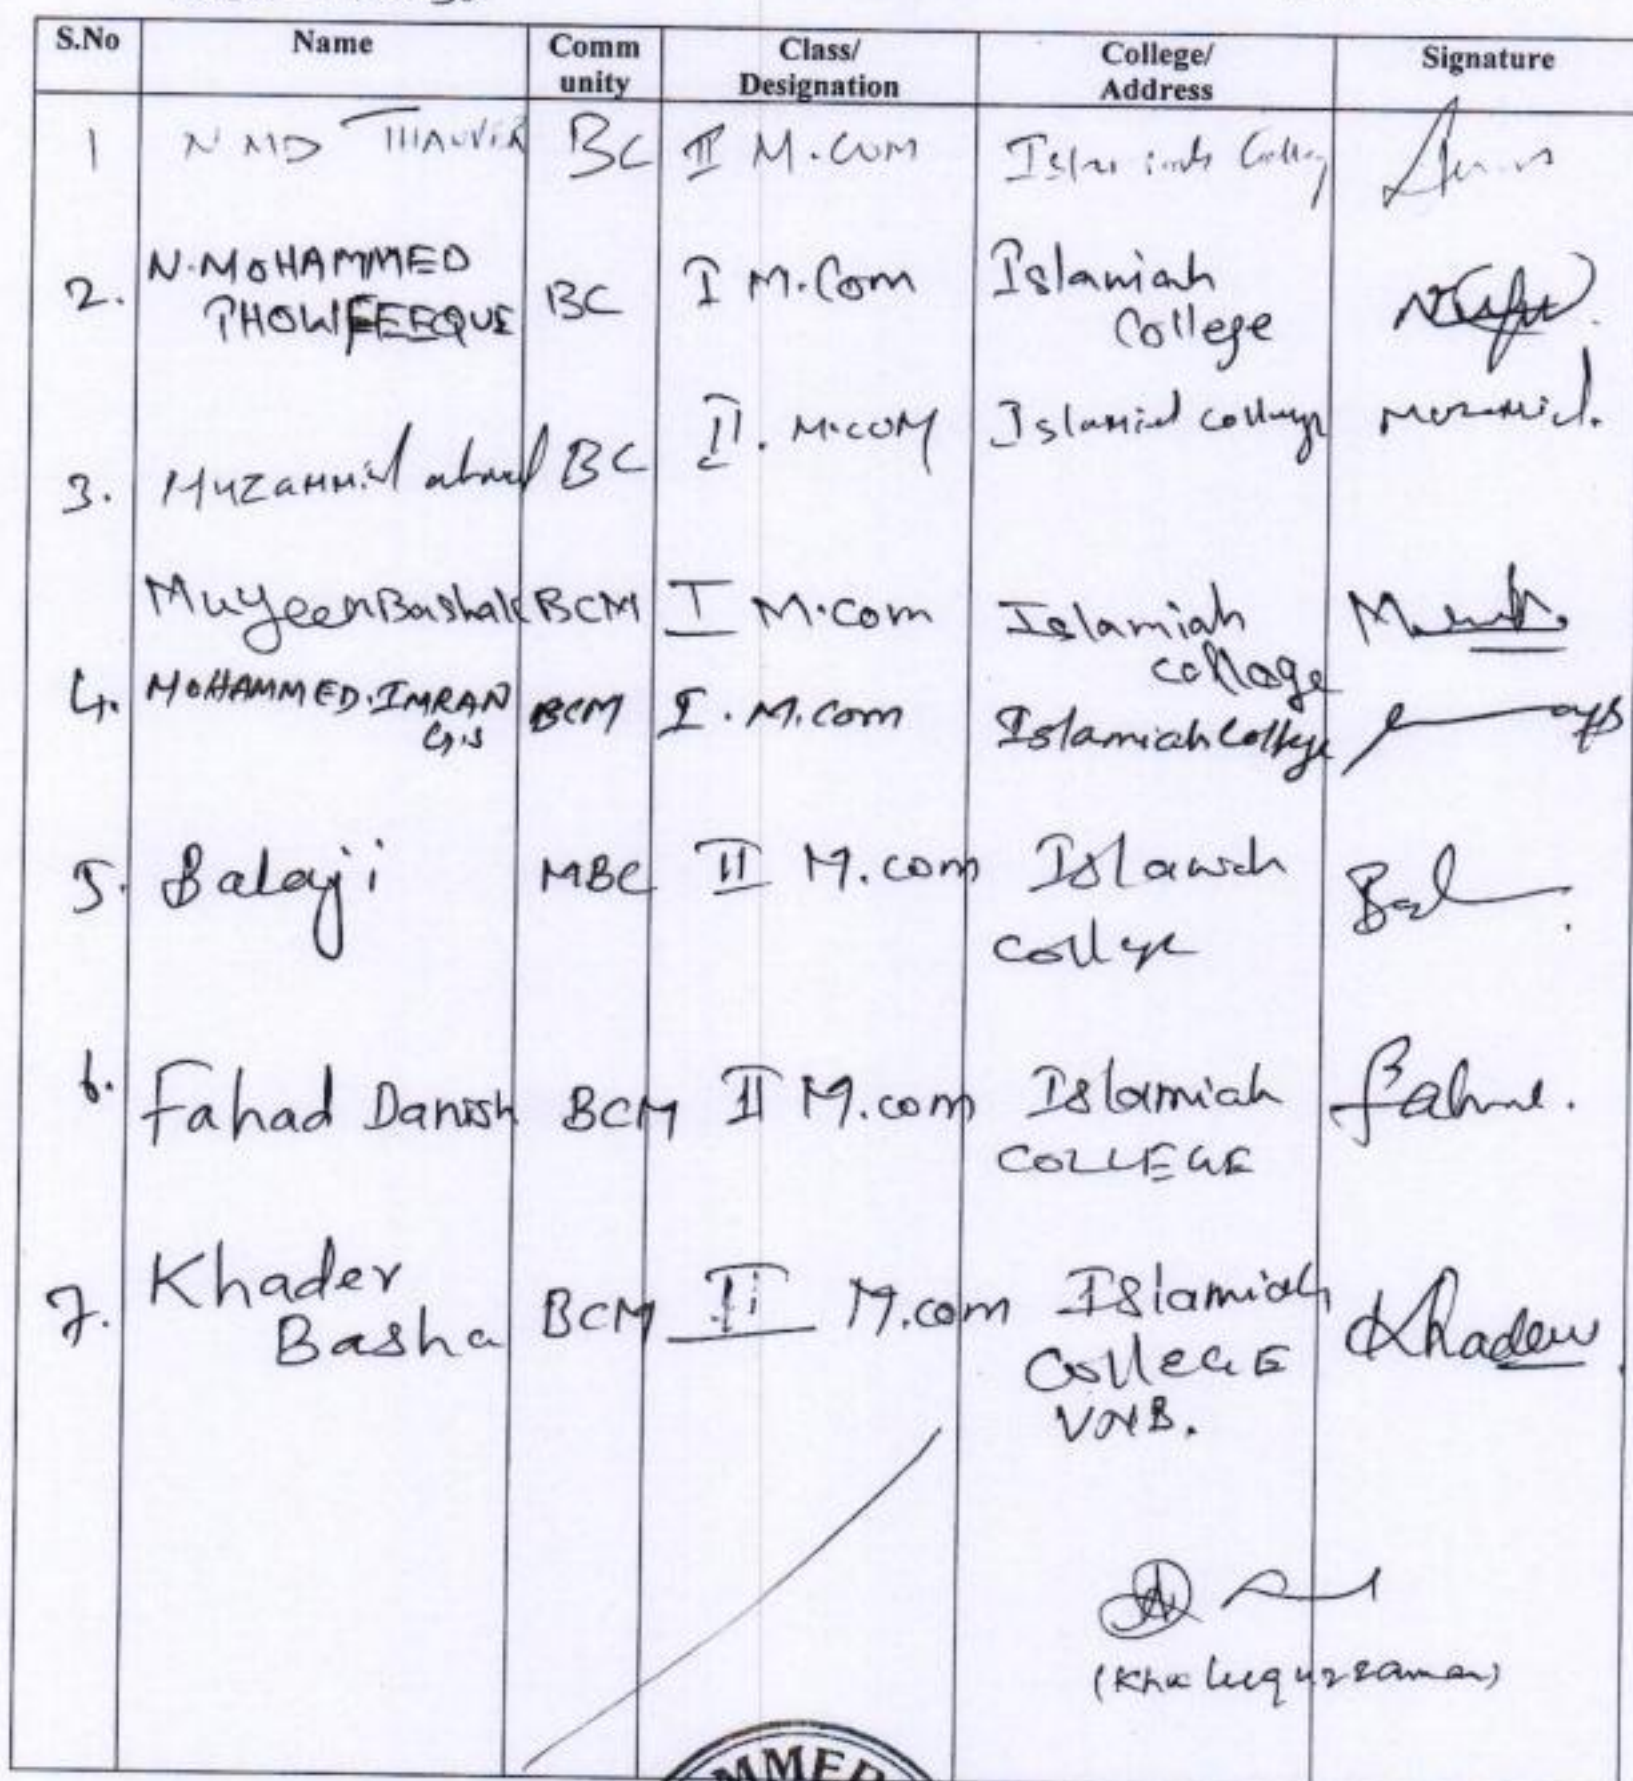 S.No Name Comm unity Class/ Designation College/ Address Signature
1 N MD BC II M.COM
2. N. MOHAMMED PHOWFEEEQUE BC I M.Com Islamiah College
3. Muzammil ahmed BC II. M.COM Islamiah college Muzammil.
Muyeen Bashak BCM I M.com Islamiah college
4. MOHAMMED.IMRAN G.S BCM I. M.com Islamiah College
5. Balaji MBC II M.com Islamiah College Bal
6. Fahad Danish BCM II M.com Islamiah COLLEGE
7. Khader Basha BCM II M.com Islamiah College VNB. Khader
(Khaleequzzaman)
MMER